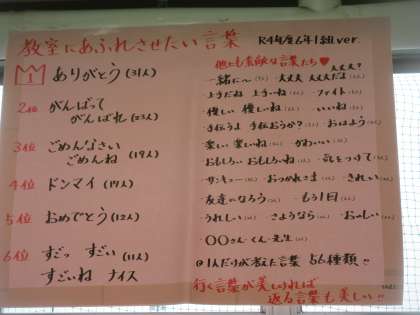 教室にあふれさせたい言葉
R4年度6年1組ver.
1 ありがとう(31人)
2位 がんばって
がんばれ(23人)
3位 ごめんなさい
ごめんね(19人)
4位 ドンマイ(17人)
5位 おめでとう(12人)
6位 すごっ すごい(11人)
すごいね ナイス
他にも素敵な言葉たち♥
・一緒に〜 ・大丈夫 大丈夫だよ 大丈夫?
・上手だね 上手いね ・ファイト
・優しい 優しいね ・いいね
・手伝うよ 手伝おうか? ・おはよう
・楽しい 楽しいね ・かわいい
・おもしろい おもしろいね ・気をつけて
・サンキュー ・おつかれさま ・きれい
・友達になろう ・もう1回
・うれしい ・さようなら ・おいしい
・〇〇さん・くん・先生
@1人だけが考えた言葉 56種類!!
行く言葉が美しければ
返る言葉も美しい!!